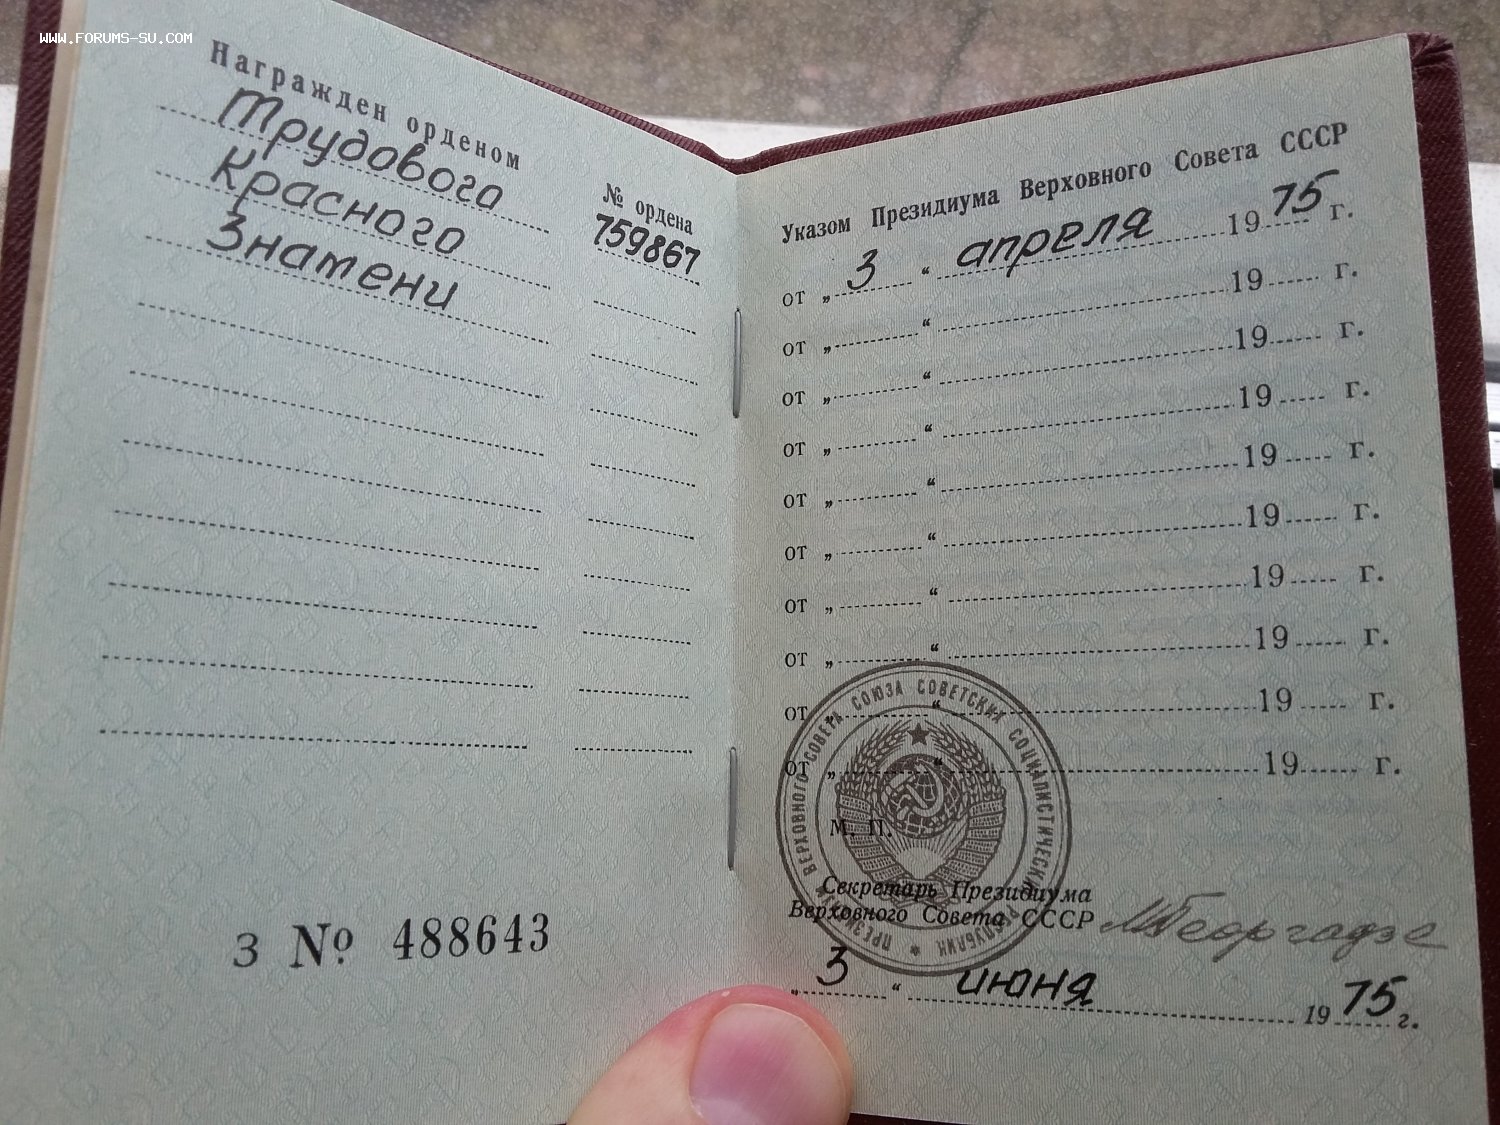 WWW.FORUMS-SU.COM
Награжден орденом
Трудового
Красного
Знамени
№ ордена
759867
З № 488643
Указом Президиума Верховного Совета СССР
от „ 3 “ апреля 1975 г.
от „ “ 19 г.
от „ “ 19 г.
от „ “ 19 г.
от „ “ 19 г.
от „ “ 19 г.
от „ “ 19 г.
от „ “ 19 г.
от „ “ 19 г.
от „ “ 19 г.
ПРЕЗИДИУМ ВЕРХОВНОГО СОВЕТА СОЮЗА СОВЕТСКИХ СОЦИАЛИСТИЧЕСКИХ РЕСПУБЛИК
М. П.
Секретарь Президиума
Верховного Совета СССР МГеоргадзе
„ 3 “ июня 1975 г.